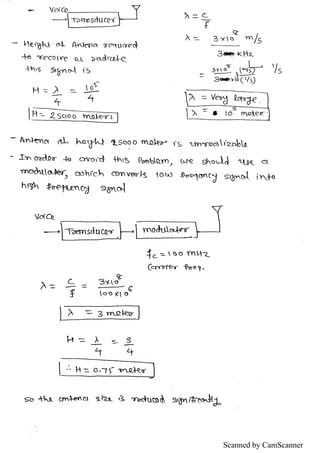 - Voice
Transducer
λ = c/f
λ = 3×10^8 m/s / 3 KHz
- Height of Antena required
to receive or radiate
this signal is
= 3×10^8 (m/s) / 3 (1/s) 1/s
H = λ/4 = 10^5/4
λ = very large.
H = 25000 meters
λ = 10^5 meter
- Antena of height 25000 meter is unrealizable
- In order to avoid this Problem, we should use a
modulator, which converts low freqancy signal into
high frequency signal
Voice
Transducer modulator
fc = 100 MHz
(carrier freq.
λ = c/f = 3×10^8 / 100×10^6
λ = 3 meter
H = λ/4 = 3/4
∴ H = 0.75 meter
so the antena size is reduced significantly
Scanned by CamScanner